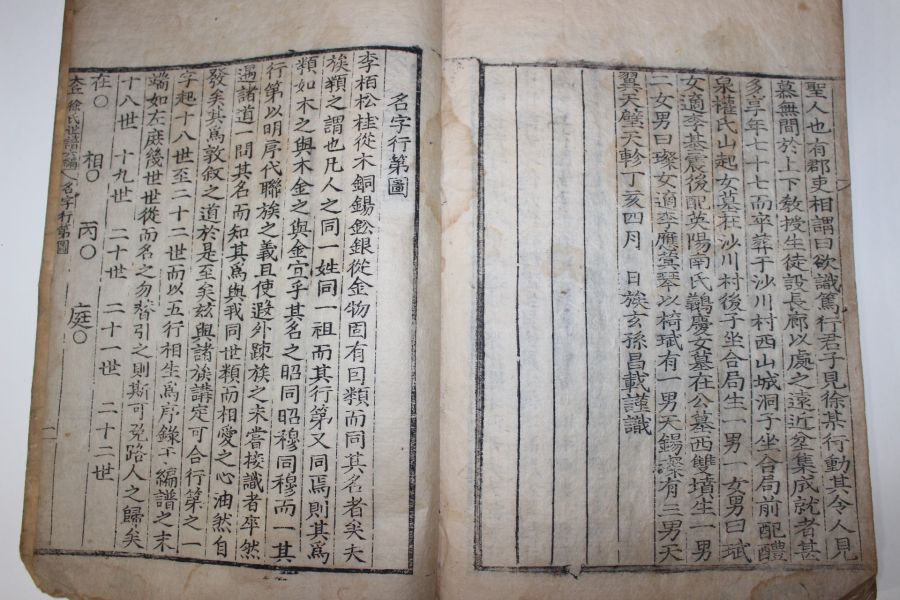 聖人也有郡吏相謂曰欲識篤行君子見徐某行動其令人見
慕無間於上下敎授生徒設長廊以處之遠近坌集成就者甚
多享年七十七而卒葬于沙川村西山城洞子坐合局前配醴
泉權氏山起女墓在沙川村後子坐合局生一男一女男曰珷
女適李基震後配英陽南氏鵫慶女墓在公墓西雙墳生一男
二女男曰璨女適李應蓂琴以椅珷有一男天錫璨有三男天
翼天璧天軫丁亥四月 日族玄孫昌載謹識
名字行第圖
李栢松桂從木銅錫鈆銀從金物固有囙類而同其名者矣夫
族類之謂也凡人之同一姓同一祖而其行第又同焉則其爲
類如木之與木金之與金宜乎其名之昭同昭穆同穆而一其
行第以明序代聯族之義且使遐外踈族之未嘗梭識者卒然
遍諸道一問其名而知其爲與我同世類而相愛之心油然自
發矣其爲敦叙之道於是至矣玆與諸族講定可合行第之一
字起十八世至二十二世而以五行相生爲序錄于編譜之末
端如左庶幾世世從而名之勿替引之則斯可免路人之歸矣
十八世 十九世 二十世 二十一世 二十二世
在○ 相○ 丙○ 庭○
徐氏世譜 編 名字行第圖
二